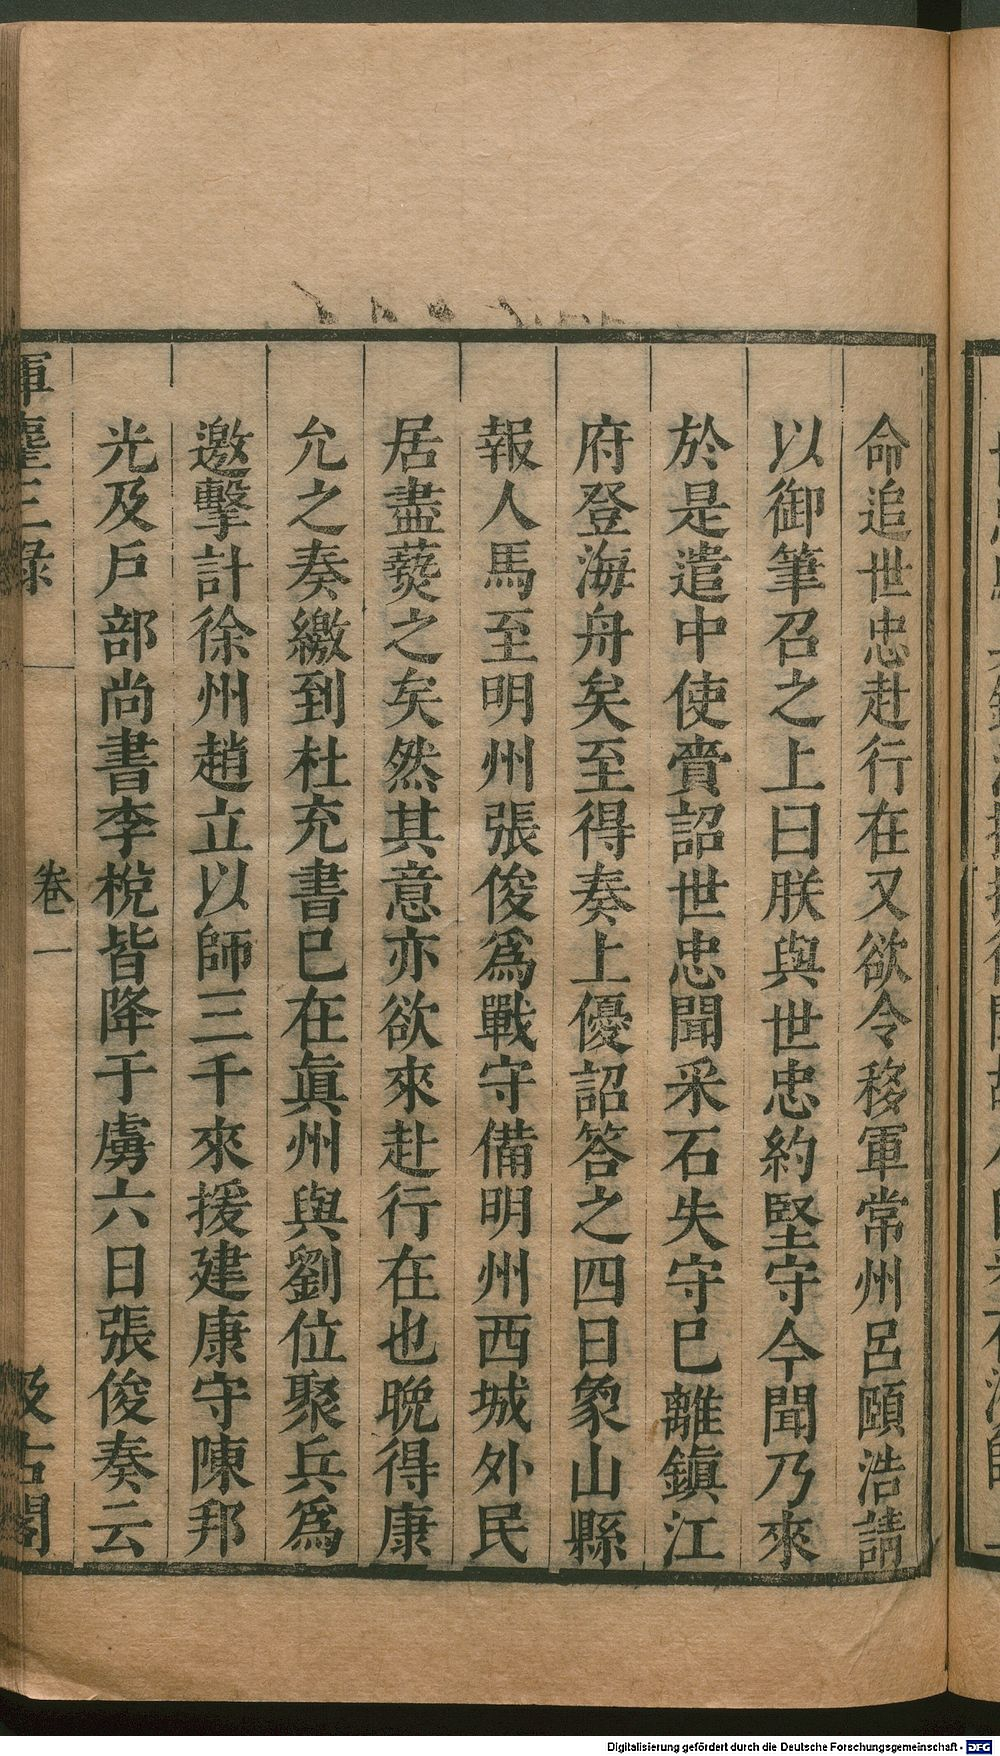 命追世忠赴行在又欲令移軍常州呂頤浩請
以御筆召之上曰朕與世忠約堅守今聞乃來
於是遣中使賫詔世忠聞采石失守已離鎮江
府登海舟矣至得奏上優詔答之四日象山縣
報人馬至明州張俊爲戰守備明州西城外民
居盡爇之矣然其意亦欲來赴行在也晚得康
允之奏繳到杜充書巳在眞州與劉位聚兵爲
邀擊計徐州趙立以師三千來援建康守陳邦
光及戶部尚書李梲皆降于虜六日張俊奏云
揮麈三錄
卷一
汲古閣
Digitalisierung gefördert durch die Deutsche Forschungsgemeinschaft - DFG